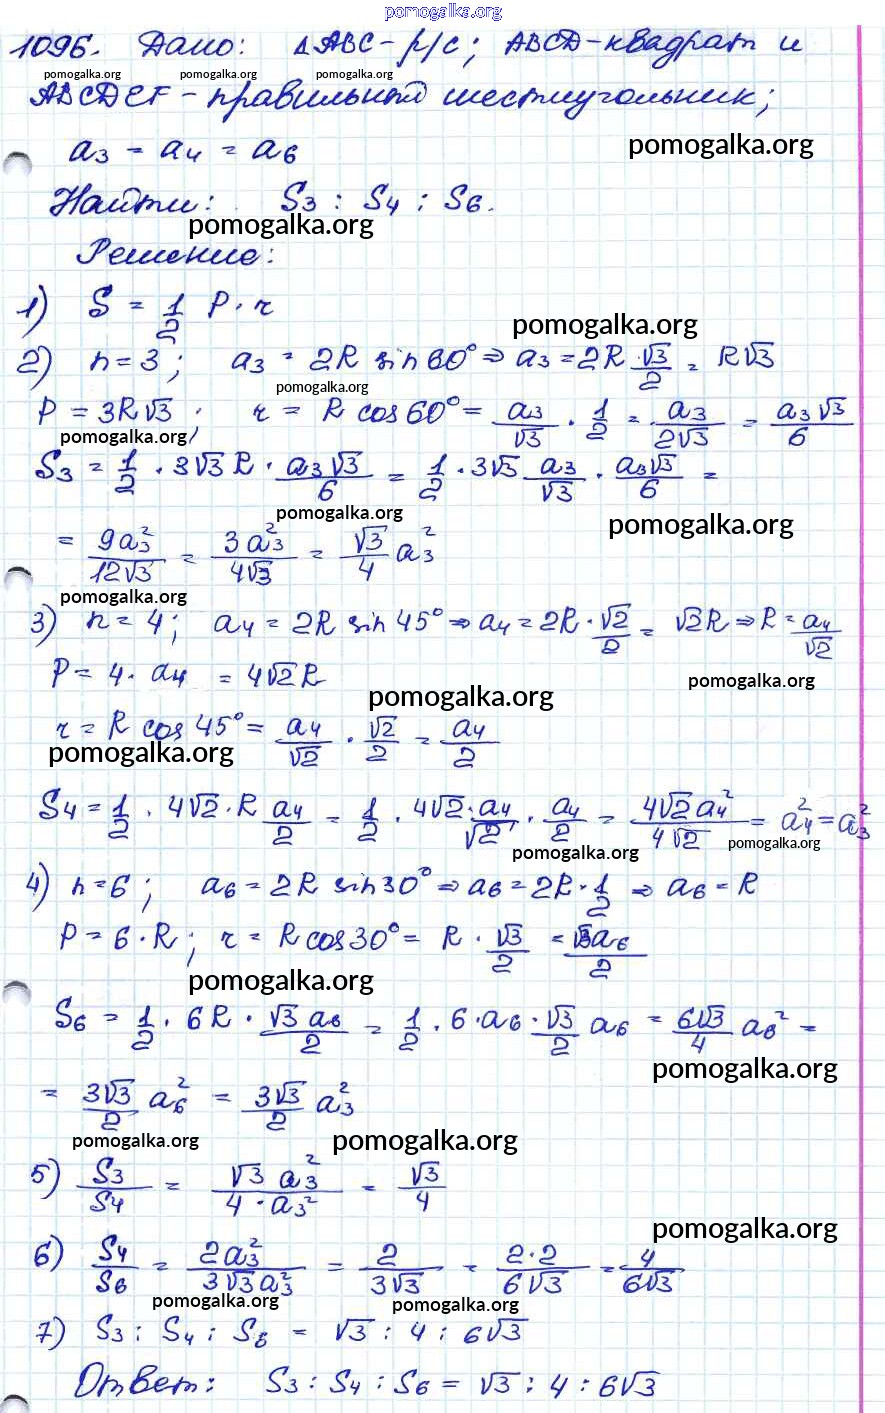 pomogalka.org
1096. Дано: ΔABC - р/с; ABCD - квадрат и
pomogalka.org pomogalka.org pomogalka.org
ABCDEF - правильный шестиугольник;
a₃ = a₄ = a₆
pomogalka.org
Найти: S₃ : S₄ : S₆.
pomogalka.org
Решение:
1) S = 1/2 P · r
pomogalka.org
2) n = 3; a₃ = 2R sin 60° ⇒ a₃ = 2R · √3/2 = R√3
pomogalka.org
P = 3R√3; r = R cos 60° = a₃/√3 · 1/2 = a₃/2√3 = a₃√3/6
pomogalka.org
S₃ = 1/2 · 3√3 R · a₃√3/6 = 1/2 · 3√3 a₃/√3 · a₃√3/6 =
pomogalka.org pomogalka.org
= 9a₃²/12√3 = 3a₃²/4√3 = √3/4 a₃²
pomogalka.org
3) n = 4; a₄ = 2R sin 45° ⇒ a₄ = 2R · √2/2 = √2R ⇒ R = a₄/√2
P = 4 · a₄ = 4√2R
pomogalka.org
pomogalka.org
r = R cos 45° = a₄/√2 · √2/2 = a₄/2
pomogalka.org
S₄ = 1/2 · 4√2 · R a₄/2 = 1/2 · 4√2 · a₄/√2 · a₄/2 = 4√2a₄²/4√2 = a₄² = a₃²
pomogalka.org pomogalka.org
4) n = 6; a₆ = 2R sin 30° ⇒ a₆ = 2R · 1/2 ⇒ a₆ = R
P = 6 · R; r = R cos 30° = R · √3/2 = √3a₆/2
pomogalka.org
S₆ = 1/2 · 6R · √3 a₆/2 = 1/2 · 6 · a₆ · √3/2 a₆ = 6√3/4 a₆² =
pomogalka.org
= 3√3/2 a₆² = 3√3/2 a₃²
pomogalka.org pomogalka.org
5) S₃/S₄ = √3 a₃²/4 · a₃² = √3/4
pomogalka.org
6) S₄/S₆ = 2a₃²/3√3a₃² = 2/3√3 = 2·2/6√3 = 4/6√3
pomogalka.org pomogalka.org
7) S₃ : S₄ : S₆ = √3 : 4 : 6√3
Ответ: S₃ : S₄ : S₆ = √3 : 4 : 6√3